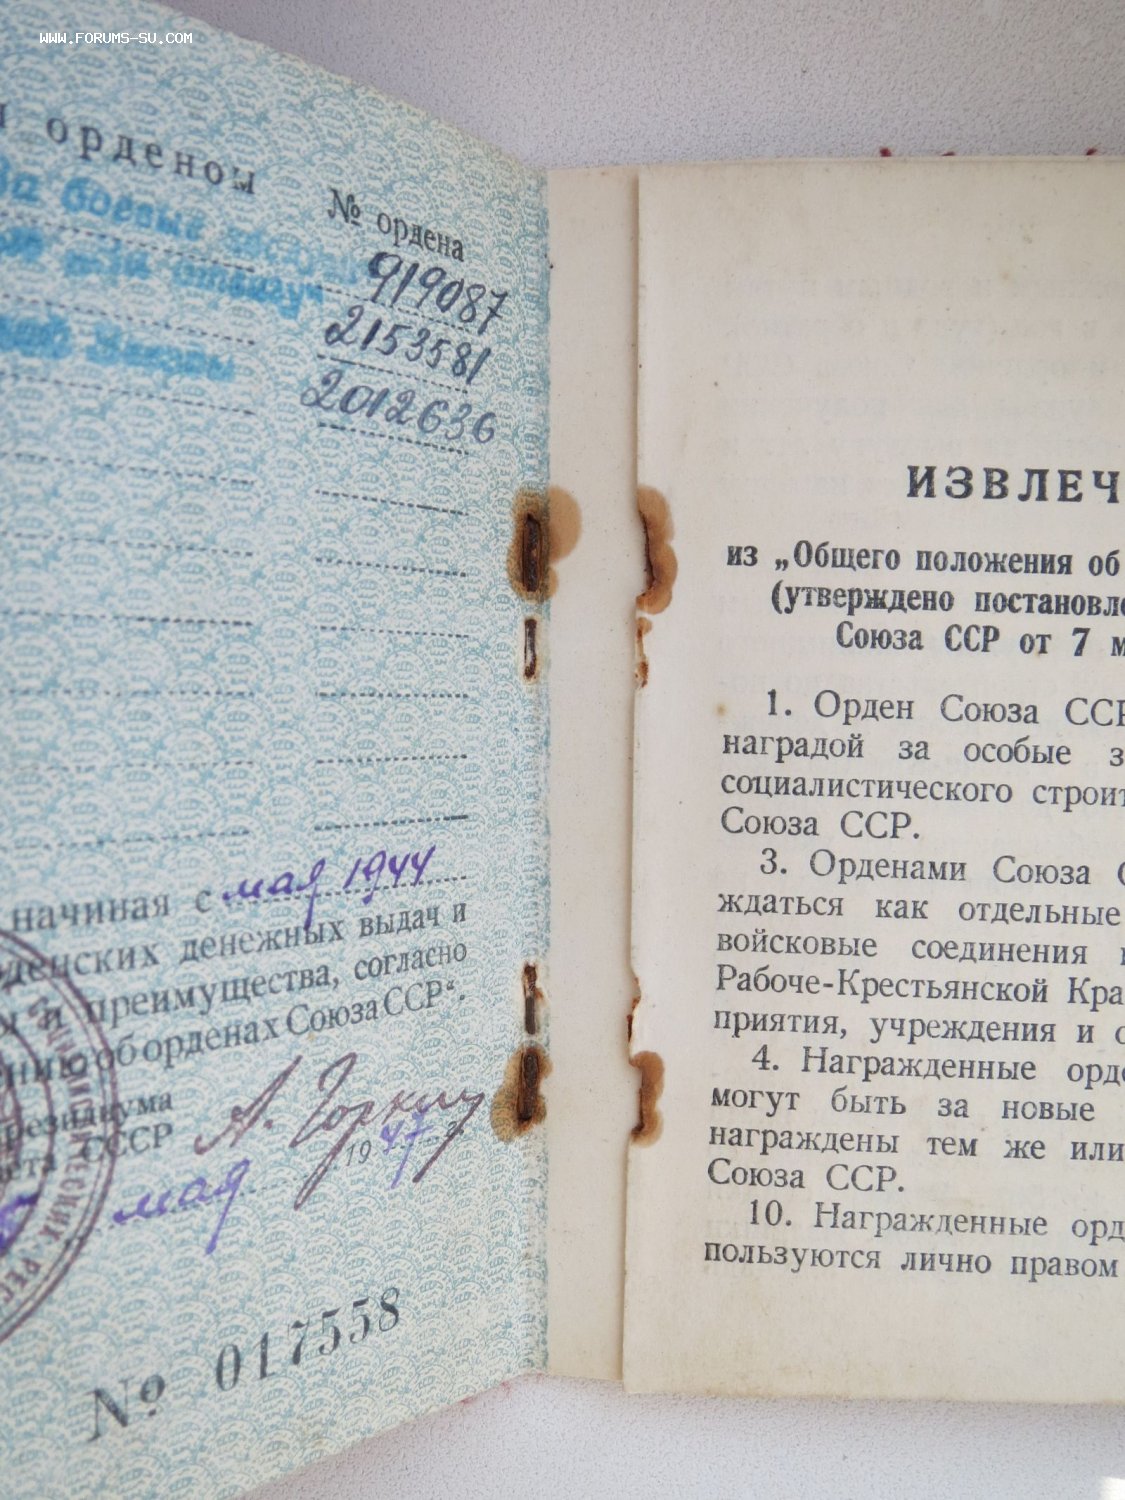 WWW.FORUMS-SU.COM
орденом
№ ордена
За боевые
919087
2153581
2012636
начиная с мая 1944
денежных выдач и
и преимущества, согласно
об орденах Союза ССР“.
СССР
А. Горкин
мая 1947 г.
№ 017558
ИЗВЛЕЧ
из „Общего положения об
(утверждено постановле
Союза ССР от 7 м
1. Орден Союза ССР
наградой за особые з
социалистического строит
Союза ССР.
3. Орденами Союза С
ждаться как отдельные
войсковые соединения
Рабоче-Крестьянской Кра
приятия, учреждения и с
4. Награжденные орде
могут быть за новые
награждены тем же или
Союза ССР.
10. Награжденные орд
пользуются лично правом